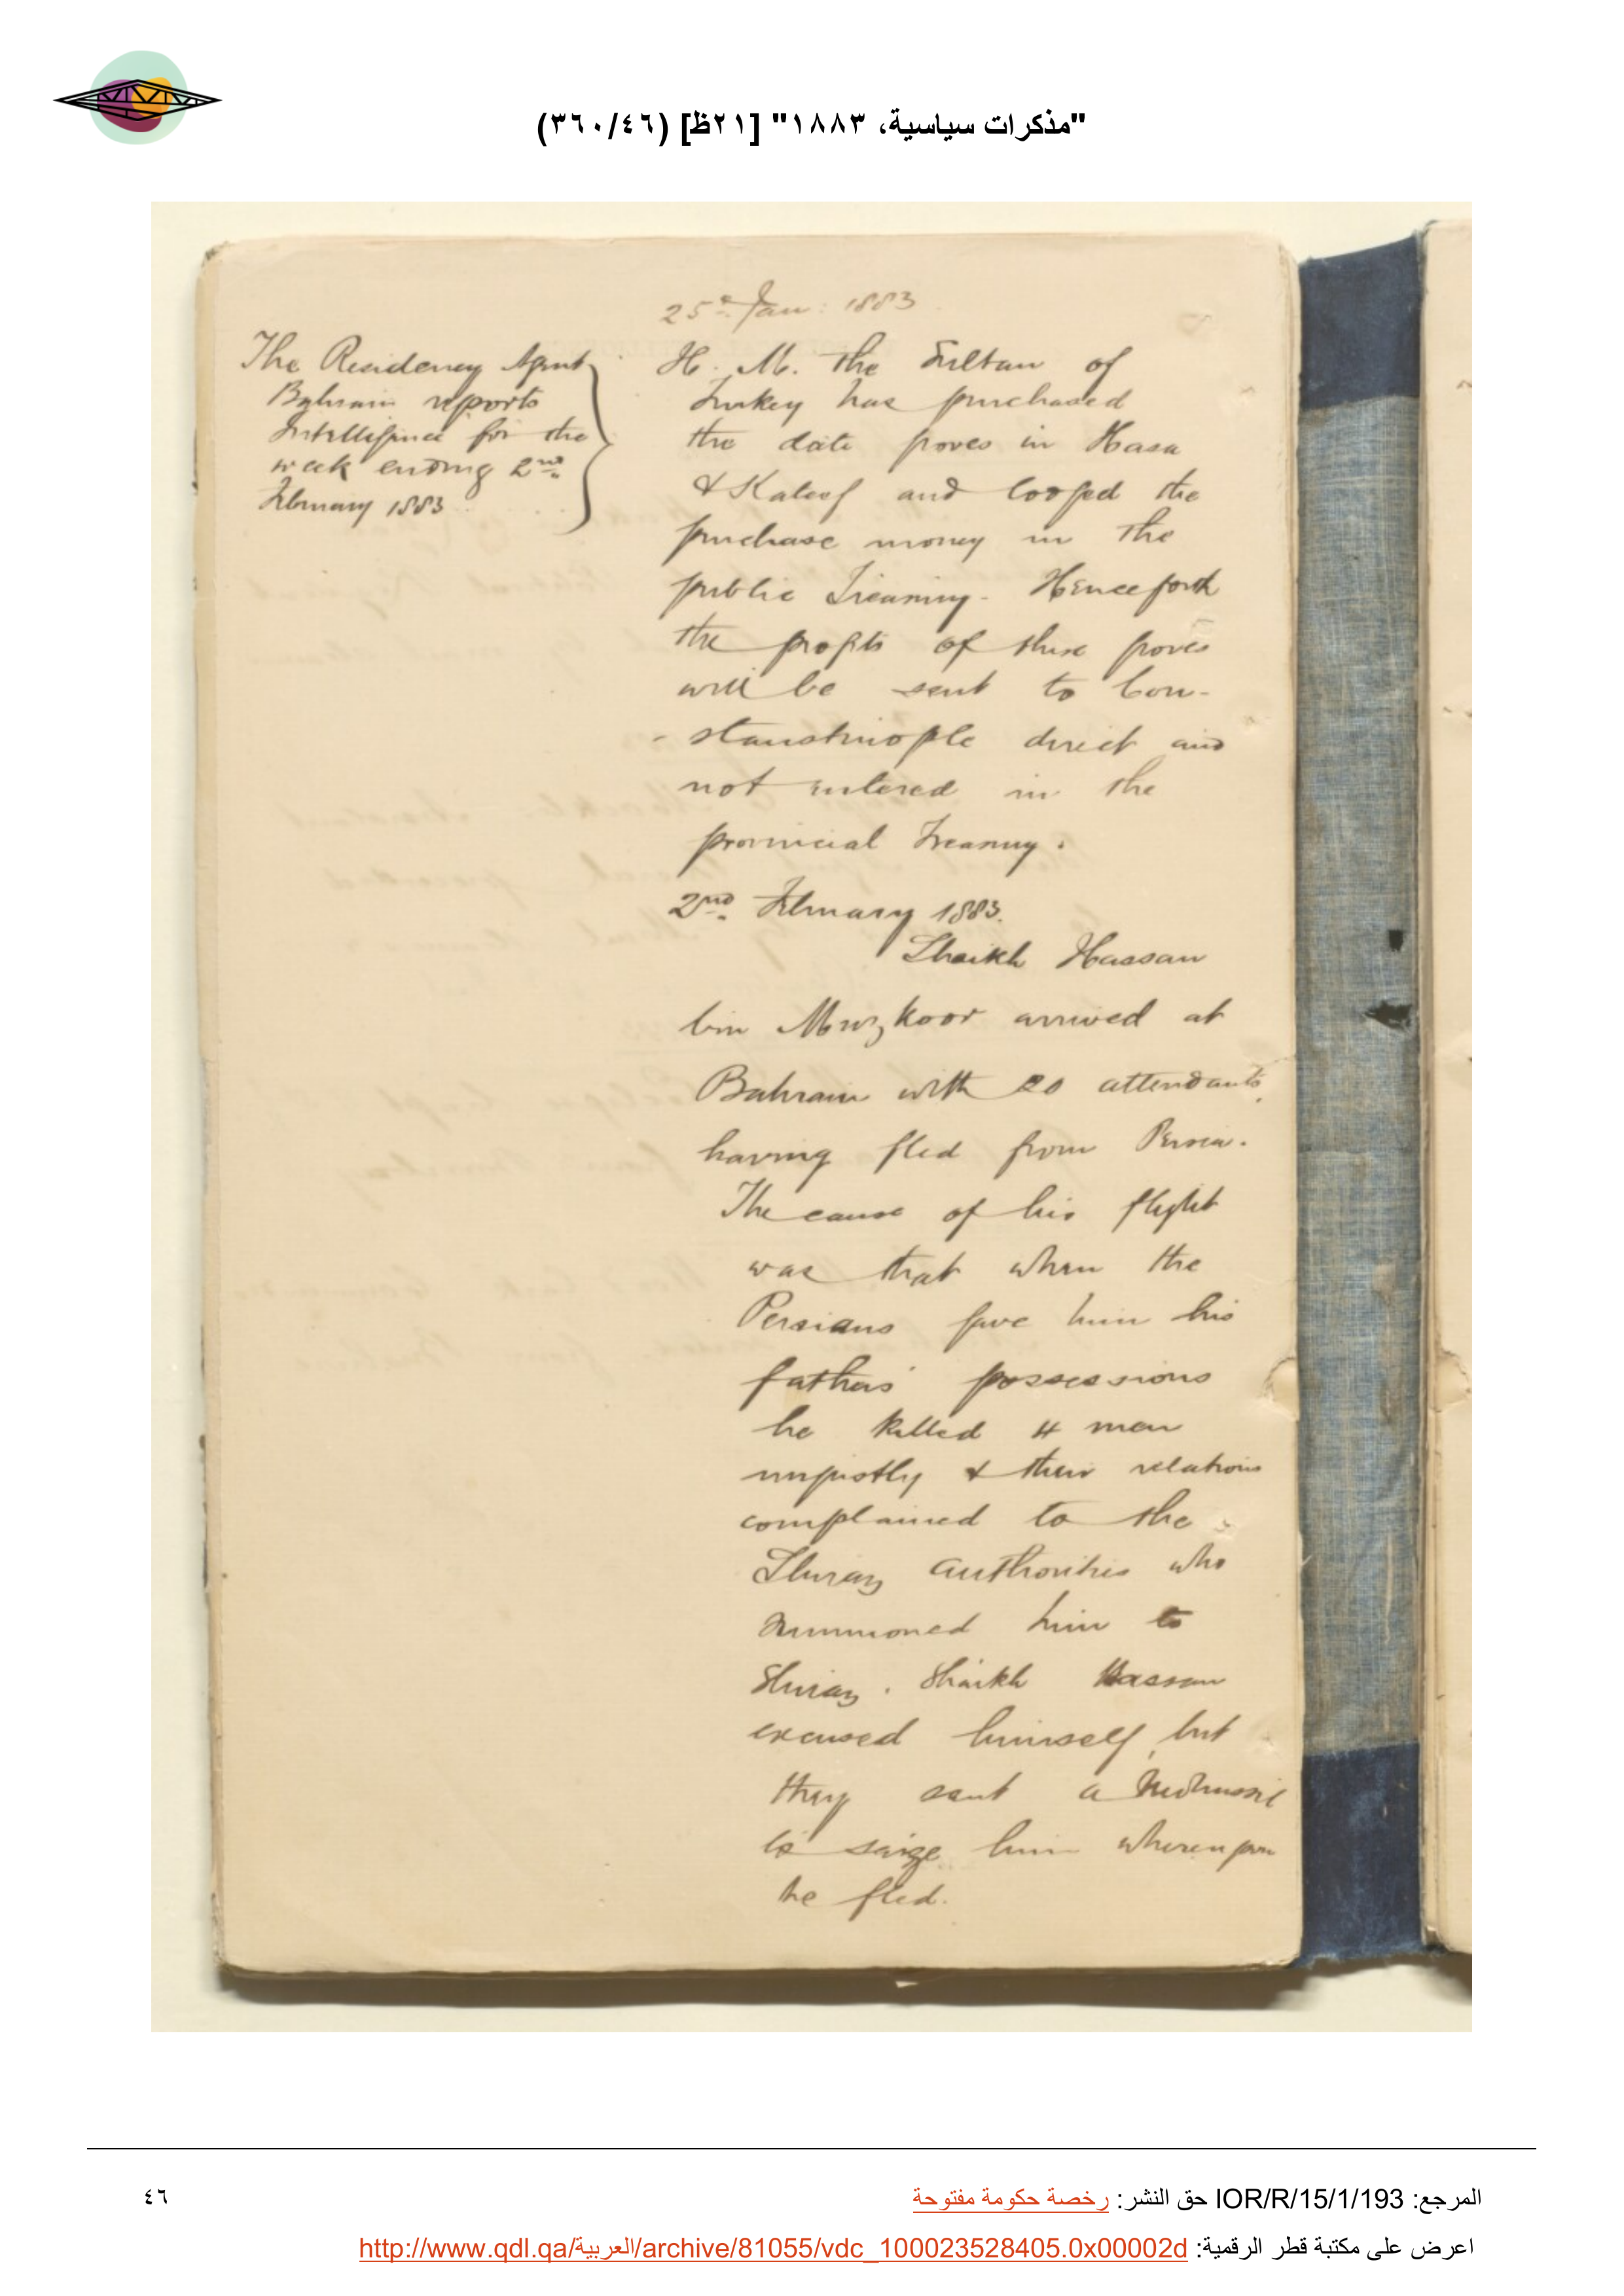 "مذكرات سياسية، ١٨٨٣" [٢١ظ] (٣٦٠/٤٦)
25th Jan: 1883
The Residency Agent
Bahrain reports
Intelligence for the
week ending 2nd
February 1883
H. M. the Sultan of
Turkey has purchased
the date groves in Hasa
& Kateef and lodged the
purchase money in the
public Treasury. Henceforth
the profits of these groves
will be sent to Con-
-stantinople direct and
not entered in the
provincial Treasury.
2nd February 1883.
Shaikh Hassan
bin Muzkoor arrived at
Bahrain with 20 attendants,
having fled from Persia.
The cause of his flight
was that when the
Persians gave him his
fathers' possessions
he killed 4 men
unjustly & their relations
complained to the
Shiraz authorities who
summoned him to
Shiraz. Shaikh Hassan
excused himself, but
they sent a
to seize him whereupon
he fled.
المرجع: IOR/R/15/1/193 حق النشر: رخصة حكومة مفتوحة
٤٦
اعرض على مكتبة قطر الرقمية: http://www.qdl.qa/العربية/archive/81055/vdc_100023528405.0x00002d